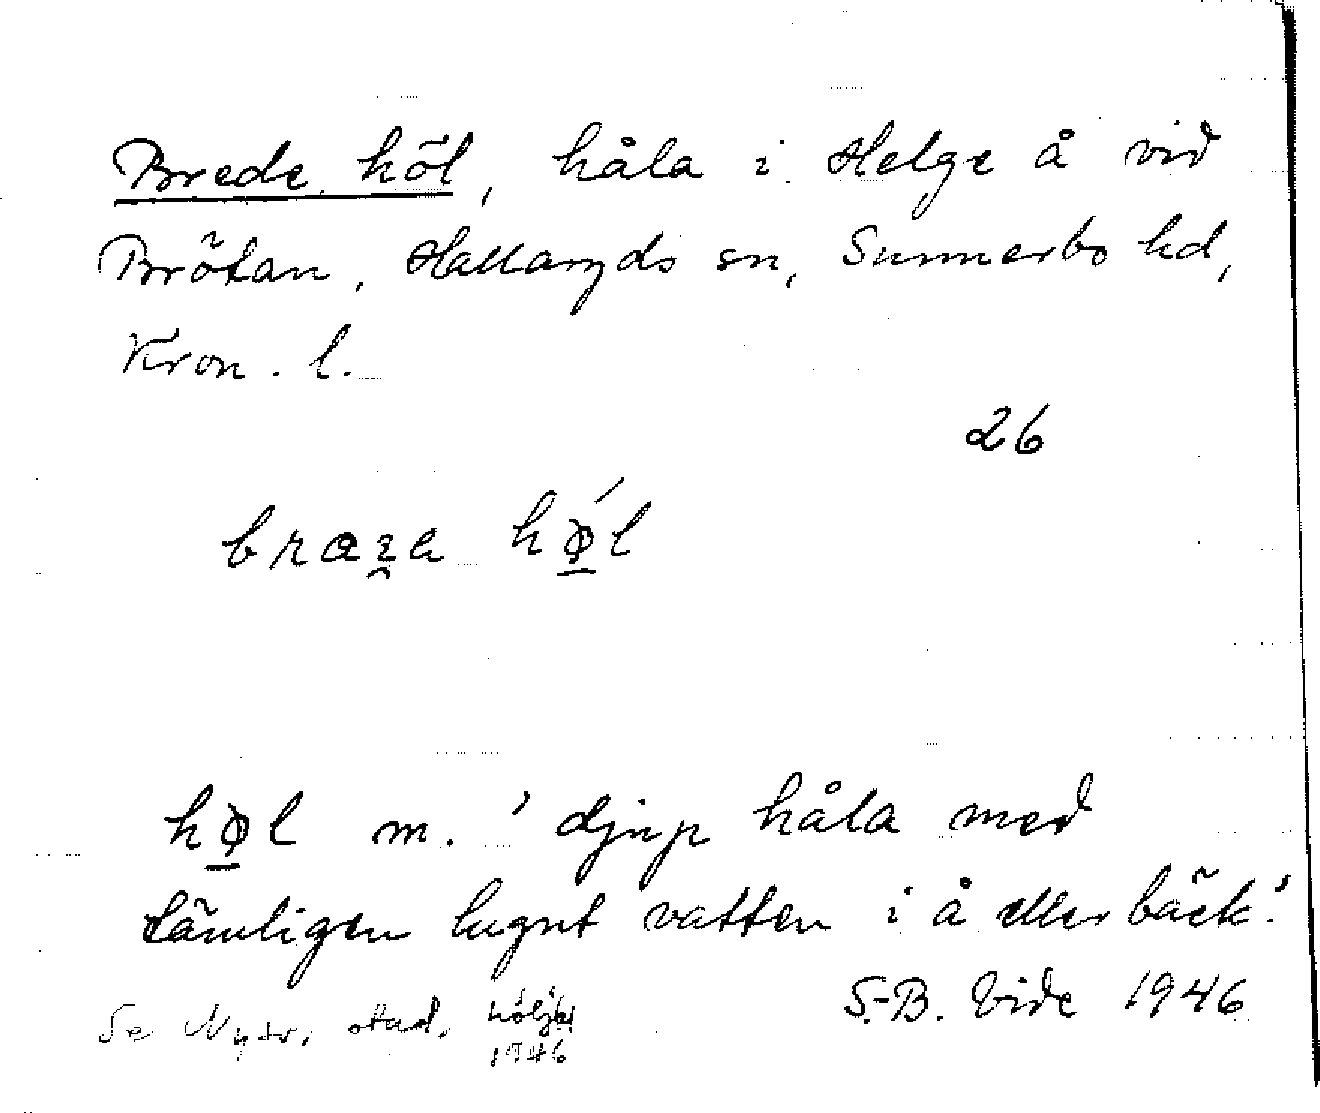 Brede höl, håla i Helge å vid
Brötan, Hallaryds sn, Sunnerbo hd,
Kron. l.
26
hø̲l m. 'djup håla med
tämligen lugnt vatten i å eller bäck.'
S.-B. Vide 1946
Se stad. 1946